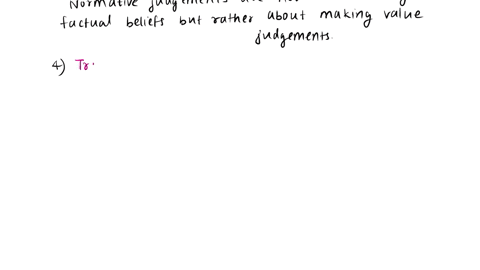 Normative judgements are not
factual beliefs but rather about making value
judgements.
4) Tr.